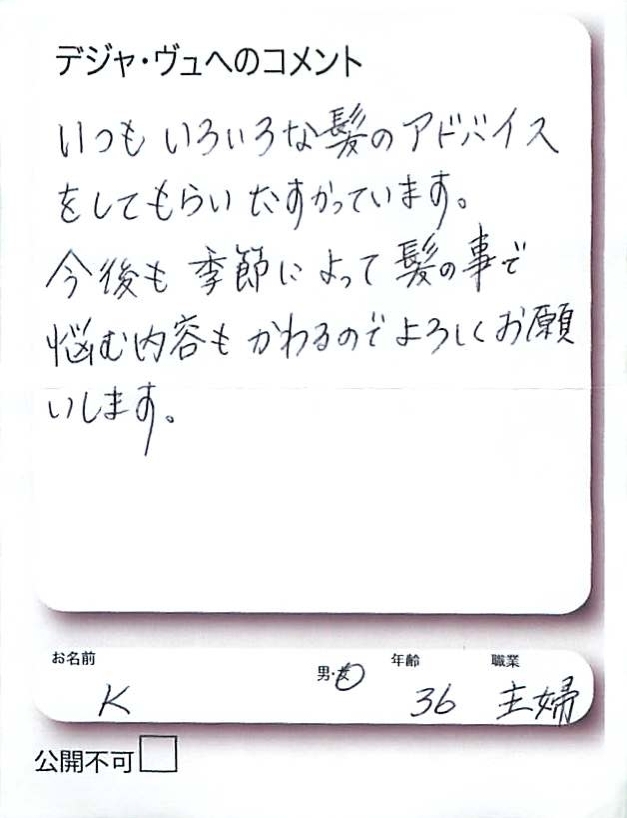 デジャ・ヴュへのコメント
いつもいろいろな髪のアドバイス
をしてもらいたすかっています。
今後も季節によって髪の事で
悩む内容もかわるのでよろしくお願
いします。
お名前 男・女 年齢 職業
K 36 主婦
公開不可